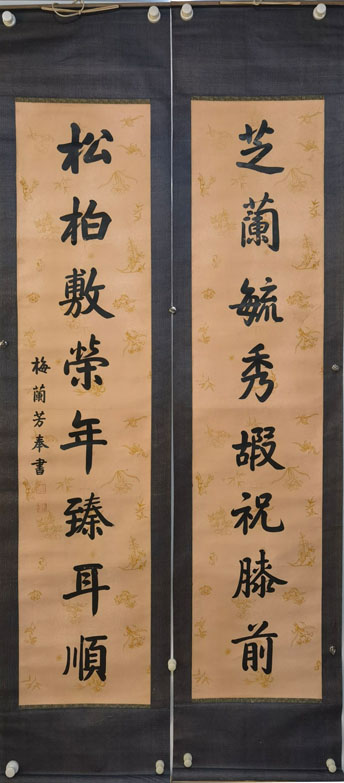 芝蘭毓秀嘏祝膝前
松柏敷榮年臻耳順
梅蘭芳奉書